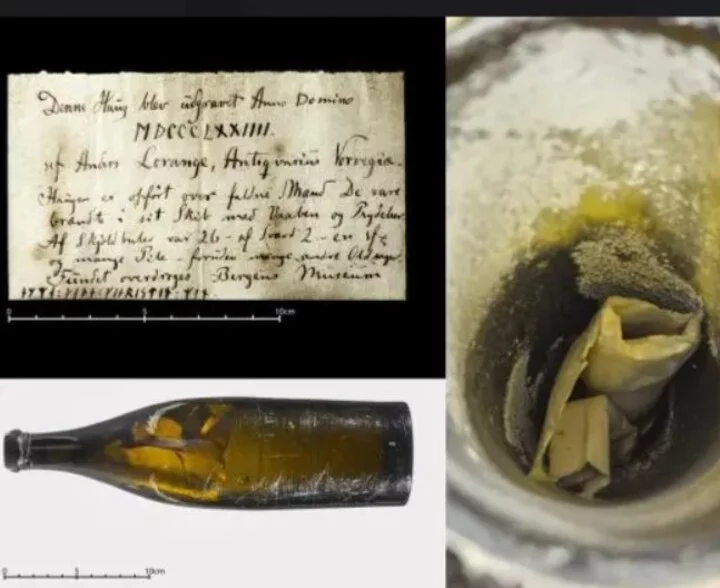 Denne Haug blev udgravet Anno Domino
MDCCCLXXIIII.
af Anders Lorange, Antiqvarius Norvegiæ.
Haugen er opført over faldne Mænd De vare
brændt i sit Skib med Vaaben og Prydelser
Af Skjoldbuler var 26 - af Sværd 2 - en
og mange Pile - foruden mange andre
Fundet overdroges Bergens Museum
0 5 10cm
0 5 10cm